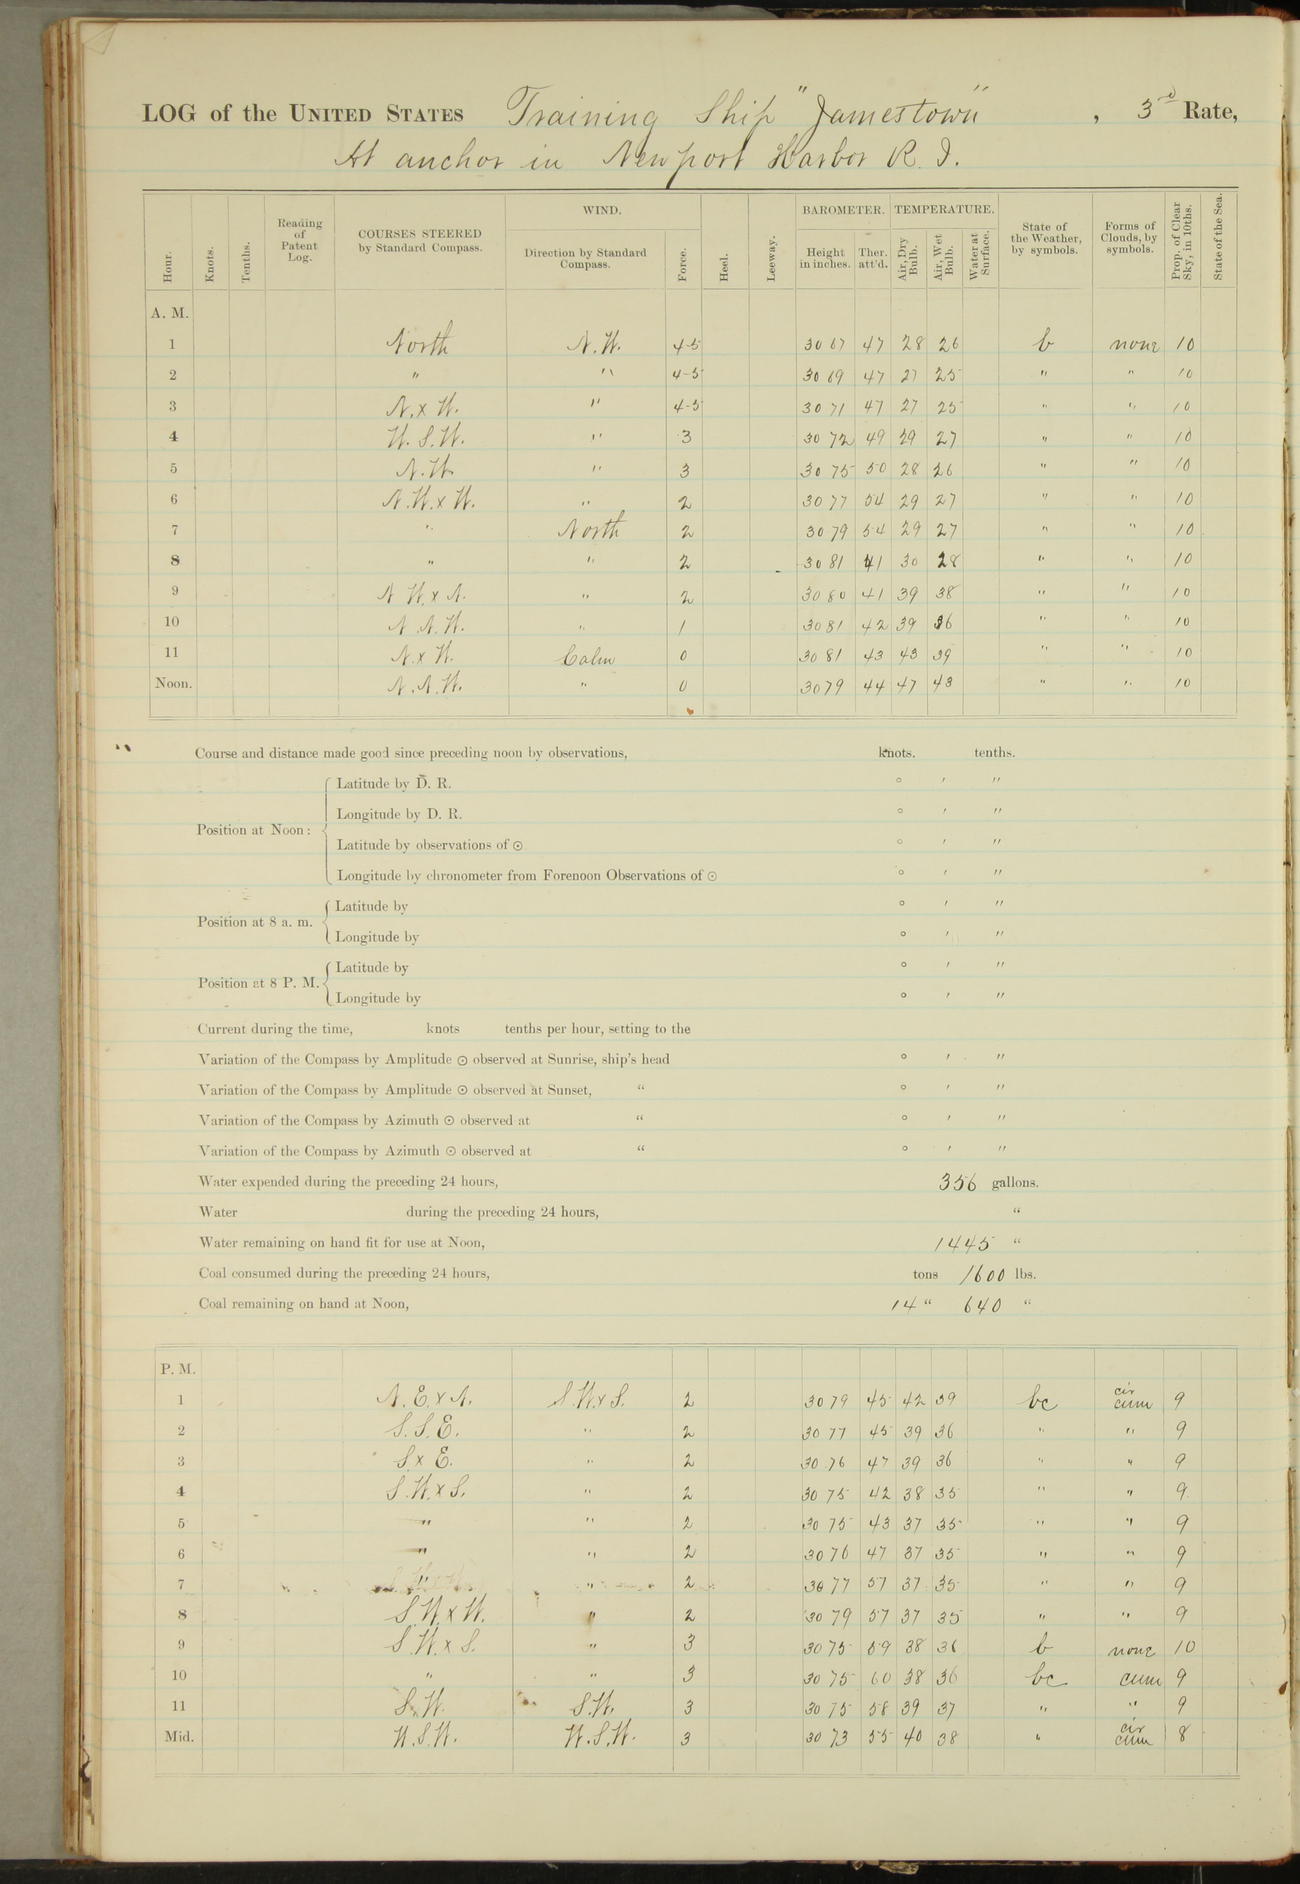 LOG of the UNITED STATES Training Ship "Jamestown", 3rd Rate,
At anchor in Newport Harbor R. I.
Hour. Knots. Tenths. Reading of Patent Log. COURSES STEERED by Standard Compass. WIND. Direction by Standard Compass. Force. Heel. Leeway. BAROMETER. Height in inches. Ther. att'd. TEMPERATURE. Air, Dry Bulb. Air, Wet Bulb. Water at Surface. State of the Weather, by symbols. Forms of Clouds, by symbols. Prop. of Clear Sky, in 10ths. State of the Sea.
A. M.
1 North N.W. 4-5 30 67 47 28 26 b none 10
2 " " 4-5 30 69 47 27 25 " " 10
3 N. x W. " 4-5 30 71 47 27 25 " " 10
4 W. S. W. " 3 30 72 49 29 27 " " 10
5 N. W. " 3 30 75 50 28 26 " " 10
6 N. W. x W. " 2 30 77 54 29 27 " " 10
7 " North 2 30 79 54 29 27 " " 10
8 " " 2 30 81 41 30 28 " " 10
9 N W. x N. " 2 30 80 41 39 38 " " 10
10 N N. W. " 1 30 81 42 39 36 " " 10
11 N. x W. Calm 0 30 81 43 43 39 " " 10
Noon. N. N. W. " 0 30 79 44 47 43 " " 10
Course and distance made good since preceding noon by observations, knots. tenths.
Position at Noon: Latitude by D. R. ° ′ ″
Longitude by D. R. ° ′ ″
Latitude by observations of ☉ ° ′ ″
Longitude by chronometer from Forenoon Observations of ☉ ° ′ ″
Position at 8 a. m. Latitude by ° ′ ″
Longitude by ° ′ ″
Position at 8 P. M. Latitude by ° ′ ″
Longitude by ° ′ ″
Current during the time, knots tenths per hour, setting to the
Variation of the Compass by Amplitude ☉ observed at Sunrise, ship's head ° ′ ″
Variation of the Compass by Amplitude ☉ observed at Sunset, " ° ′ ″
Variation of the Compass by Azimuth ☉ observed at " ° ′ ″
Variation of the Compass by Azimuth ☉ observed at " ° ′ ″
Water expended during the preceding 24 hours, 356 gallons.
Water during the preceding 24 hours, "
Water remaining on hand fit for use at Noon, 1445 "
Coal consumed during the preceding 24 hours, tons 1600 lbs.
Coal remaining on hand at Noon, 14 " 640 "
P. M.
1 N. E. x N. S. W. x S. 2 30 79 45 42 39 bc cir cum 9
2 S. S. E. " 2 30 77 45 39 36 " " 9
3 S x E. " 2 30 76 47 39 36 " " 9
4 S. W. x S. " 2 30 75 42 38 35 " " 9
5 " " 2 30 75 43 37 35 " " 9
6 " " 2 30 76 47 37 35 " " 9
7 " " 2 30 77 57 37 35 " " 9
8 S. W. x W. " 2 30 79 57 37 35 " " 9
9 S. W. x S. " 3 30 75 59 38 36 b none 10
10 " " 3 30 75 60 38 36 bc cum 9
11 S. W. S. W. 3 30 75 58 39 37 " " 9
Mid. W. S. W. W. S. W. 3 30 73 55 40 38 " cir cum 8